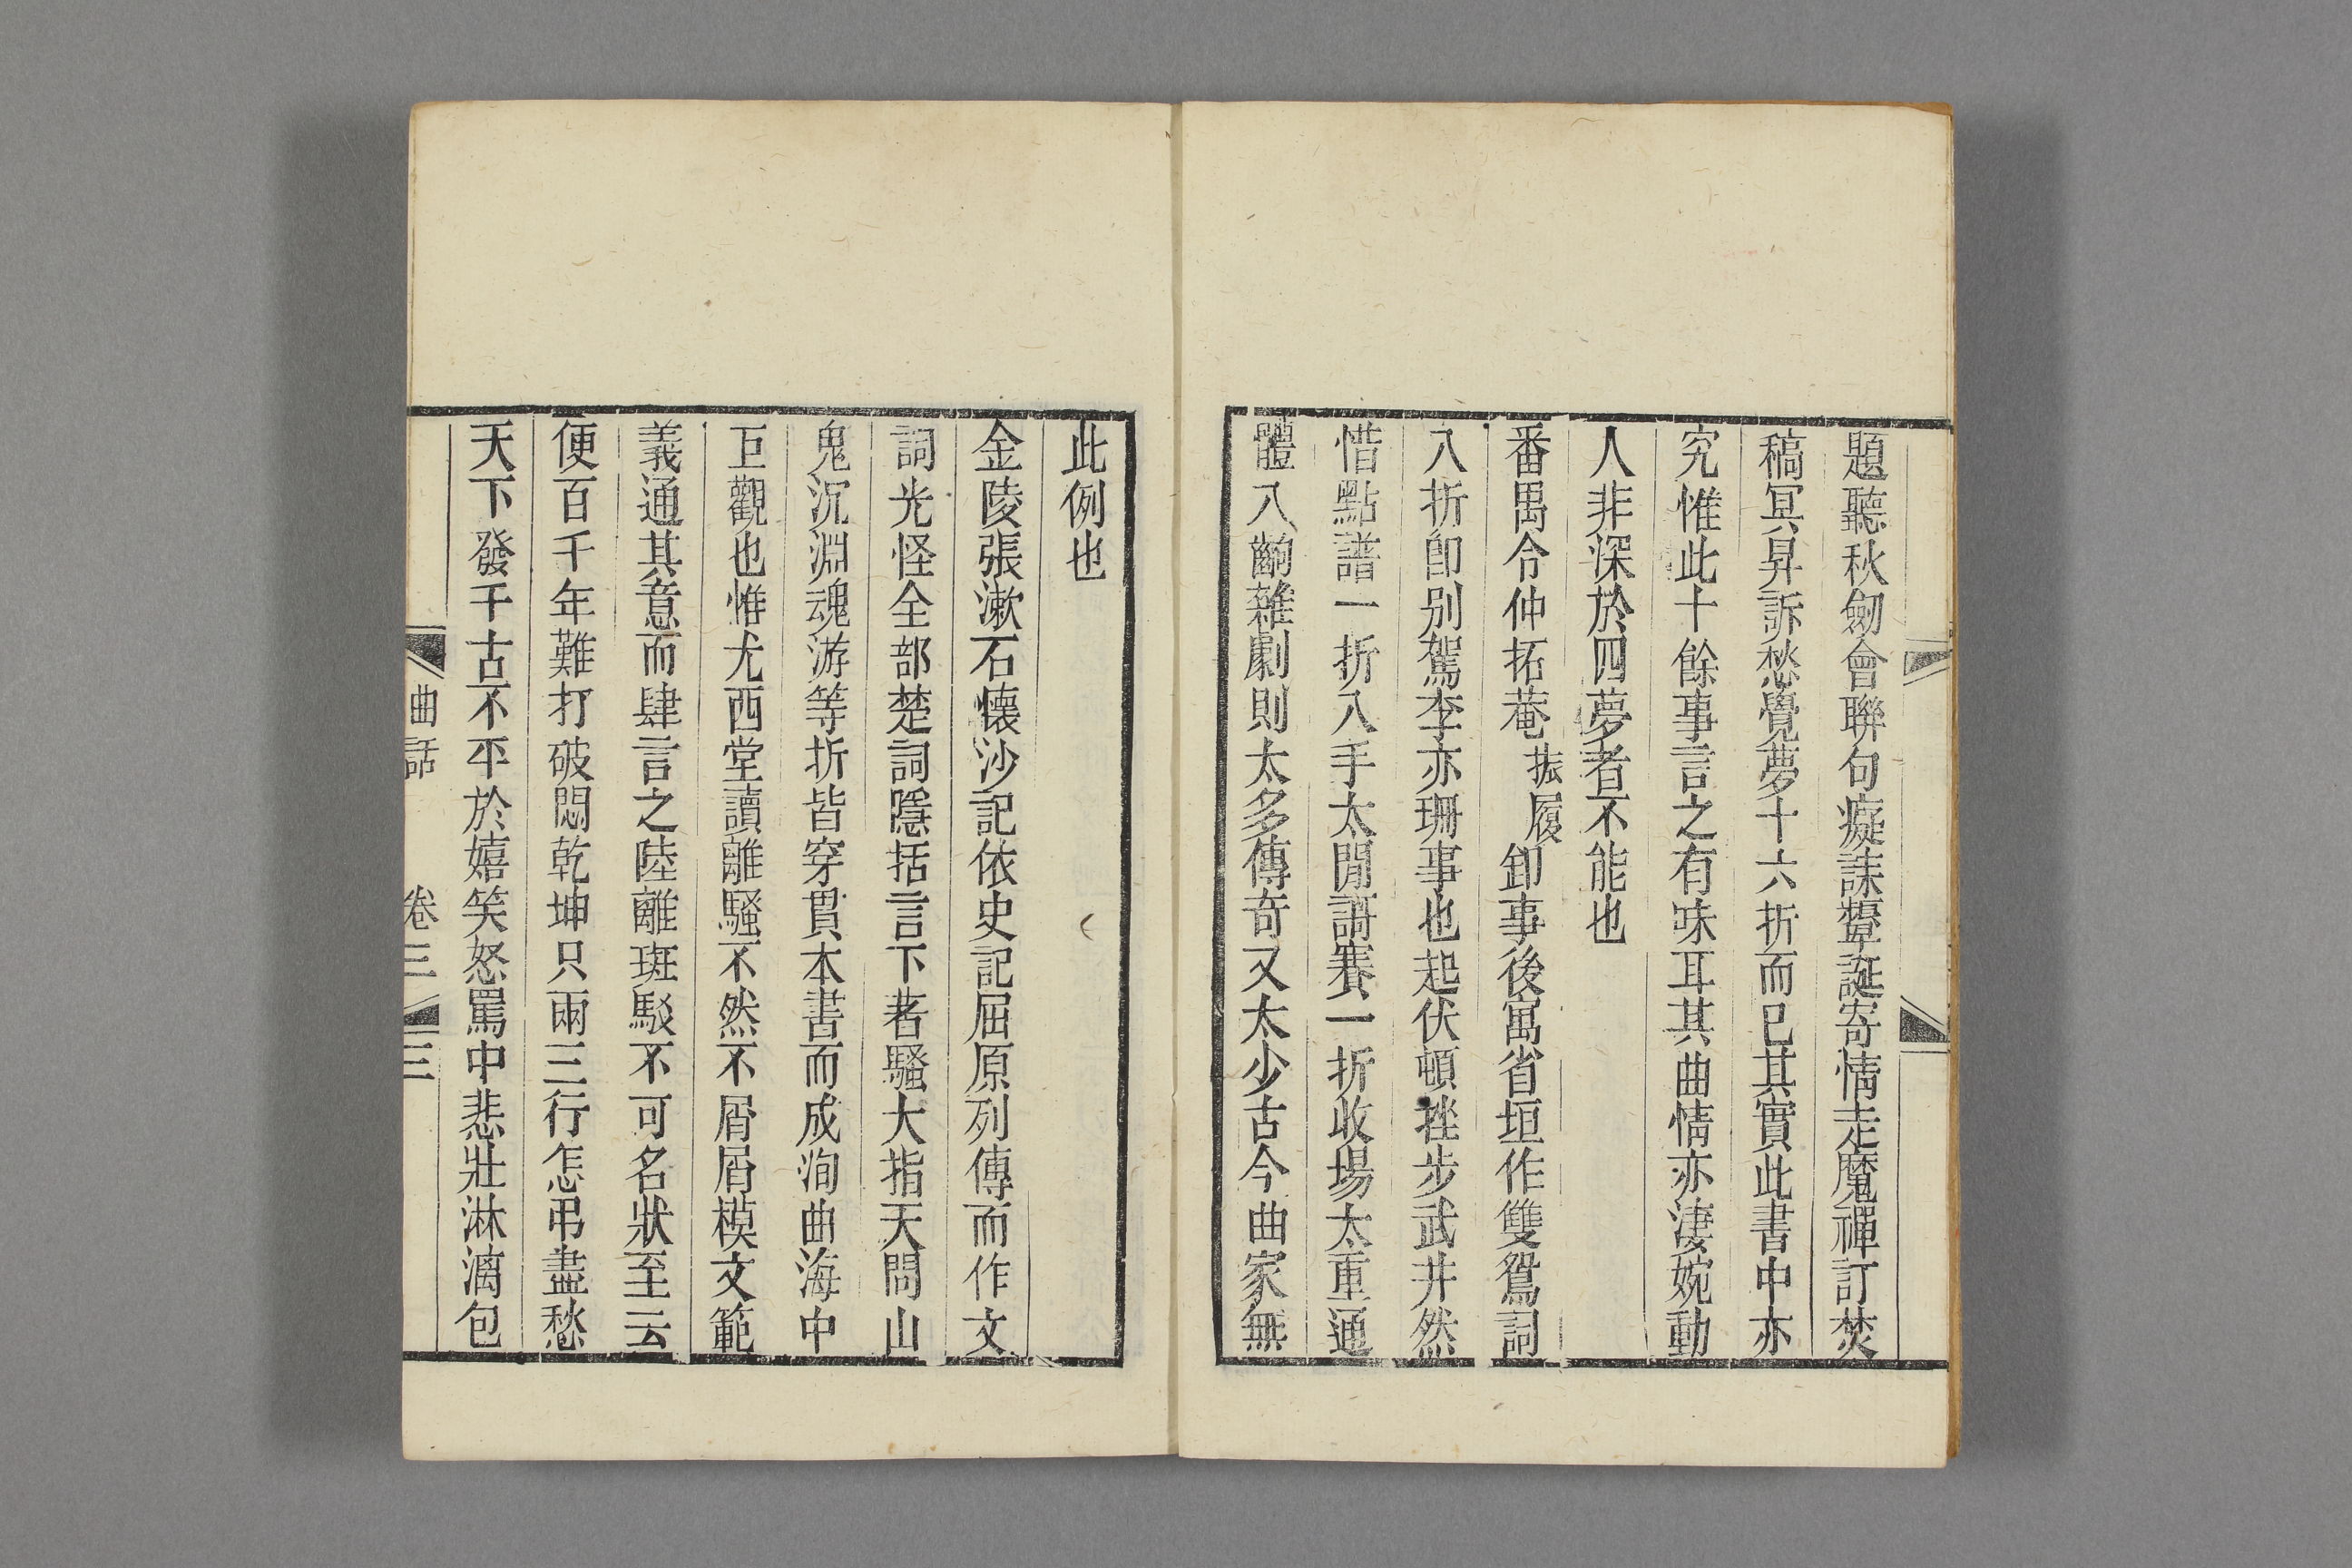 題聽秋劒會聯句癡誄顰誕寄情走魔禪訂焚
稿冥昇訴愁覺夢十六折而已其實此書中亦
究惟此十餘事言之有味耳其曲情亦淒婉動
人非深於四夢者不能也
番禺令仲拓菴振履卸事後寓省垣作雙鴛詞
八折卽别駕李亦珊事也起伏頓挫步武井然
惜點譜一折入手太閒譸賽一折收場太重通
體八齣雜劇則太多傳奇又太少古今曲家無
此例也
金陵張漱石懐沙記依史記屈原列傳而作文
詞光怪全部楚詞隱括言下著騷大指天問山
鬼沉淵魂游等折皆穿貫本書而成洵曲海中
巨觀也惟尤西堂讀離騷不然不屑屑模文範
義通其意而肆言之陸離斑駁不可名狀至云
便百千年難打破悶乾坤只兩三行怎弔盡愁
天下發千古不平於嬉笑怒罵中悲壯淋漓包
曲話 卷三 三